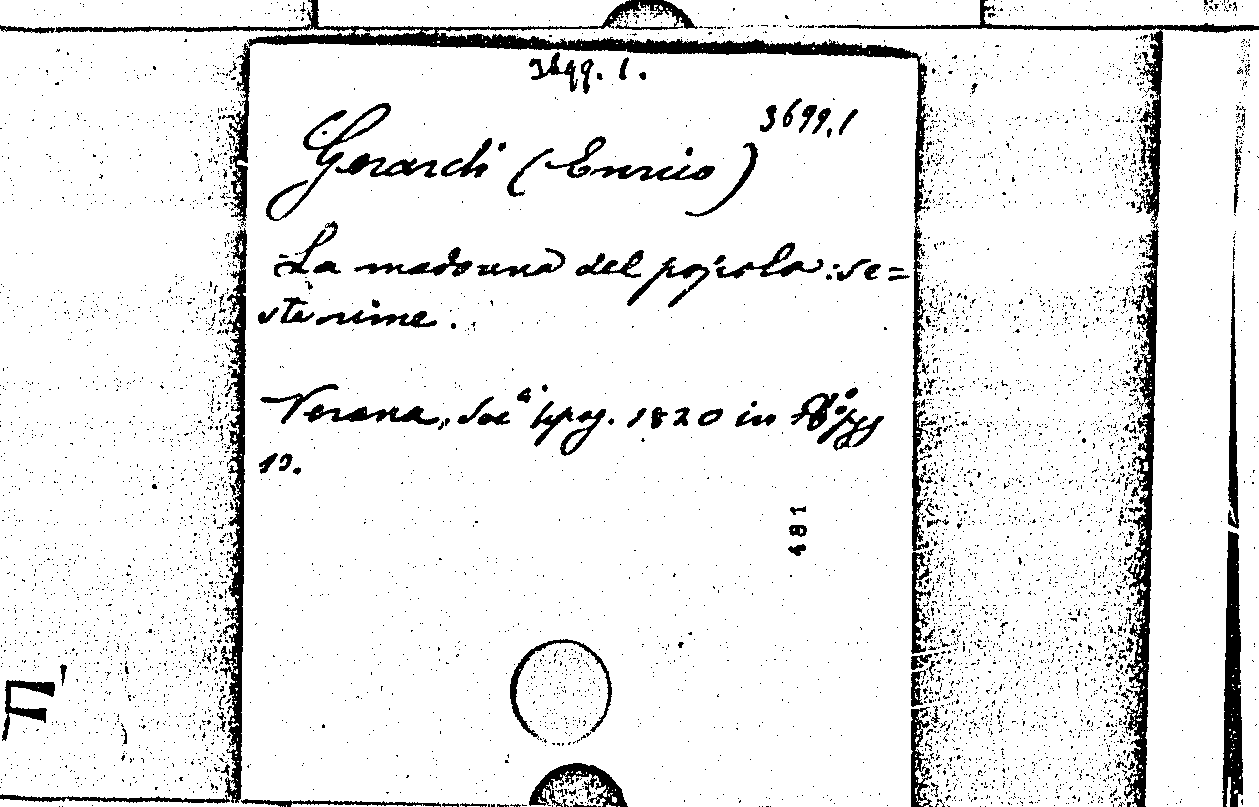 3699.1.
3699.1
Gerardi (Enrico)
La madonna del popolo: se=
ste rime.
Verona, Soc.ª tipog. 1820 in 8º pp
13.
481